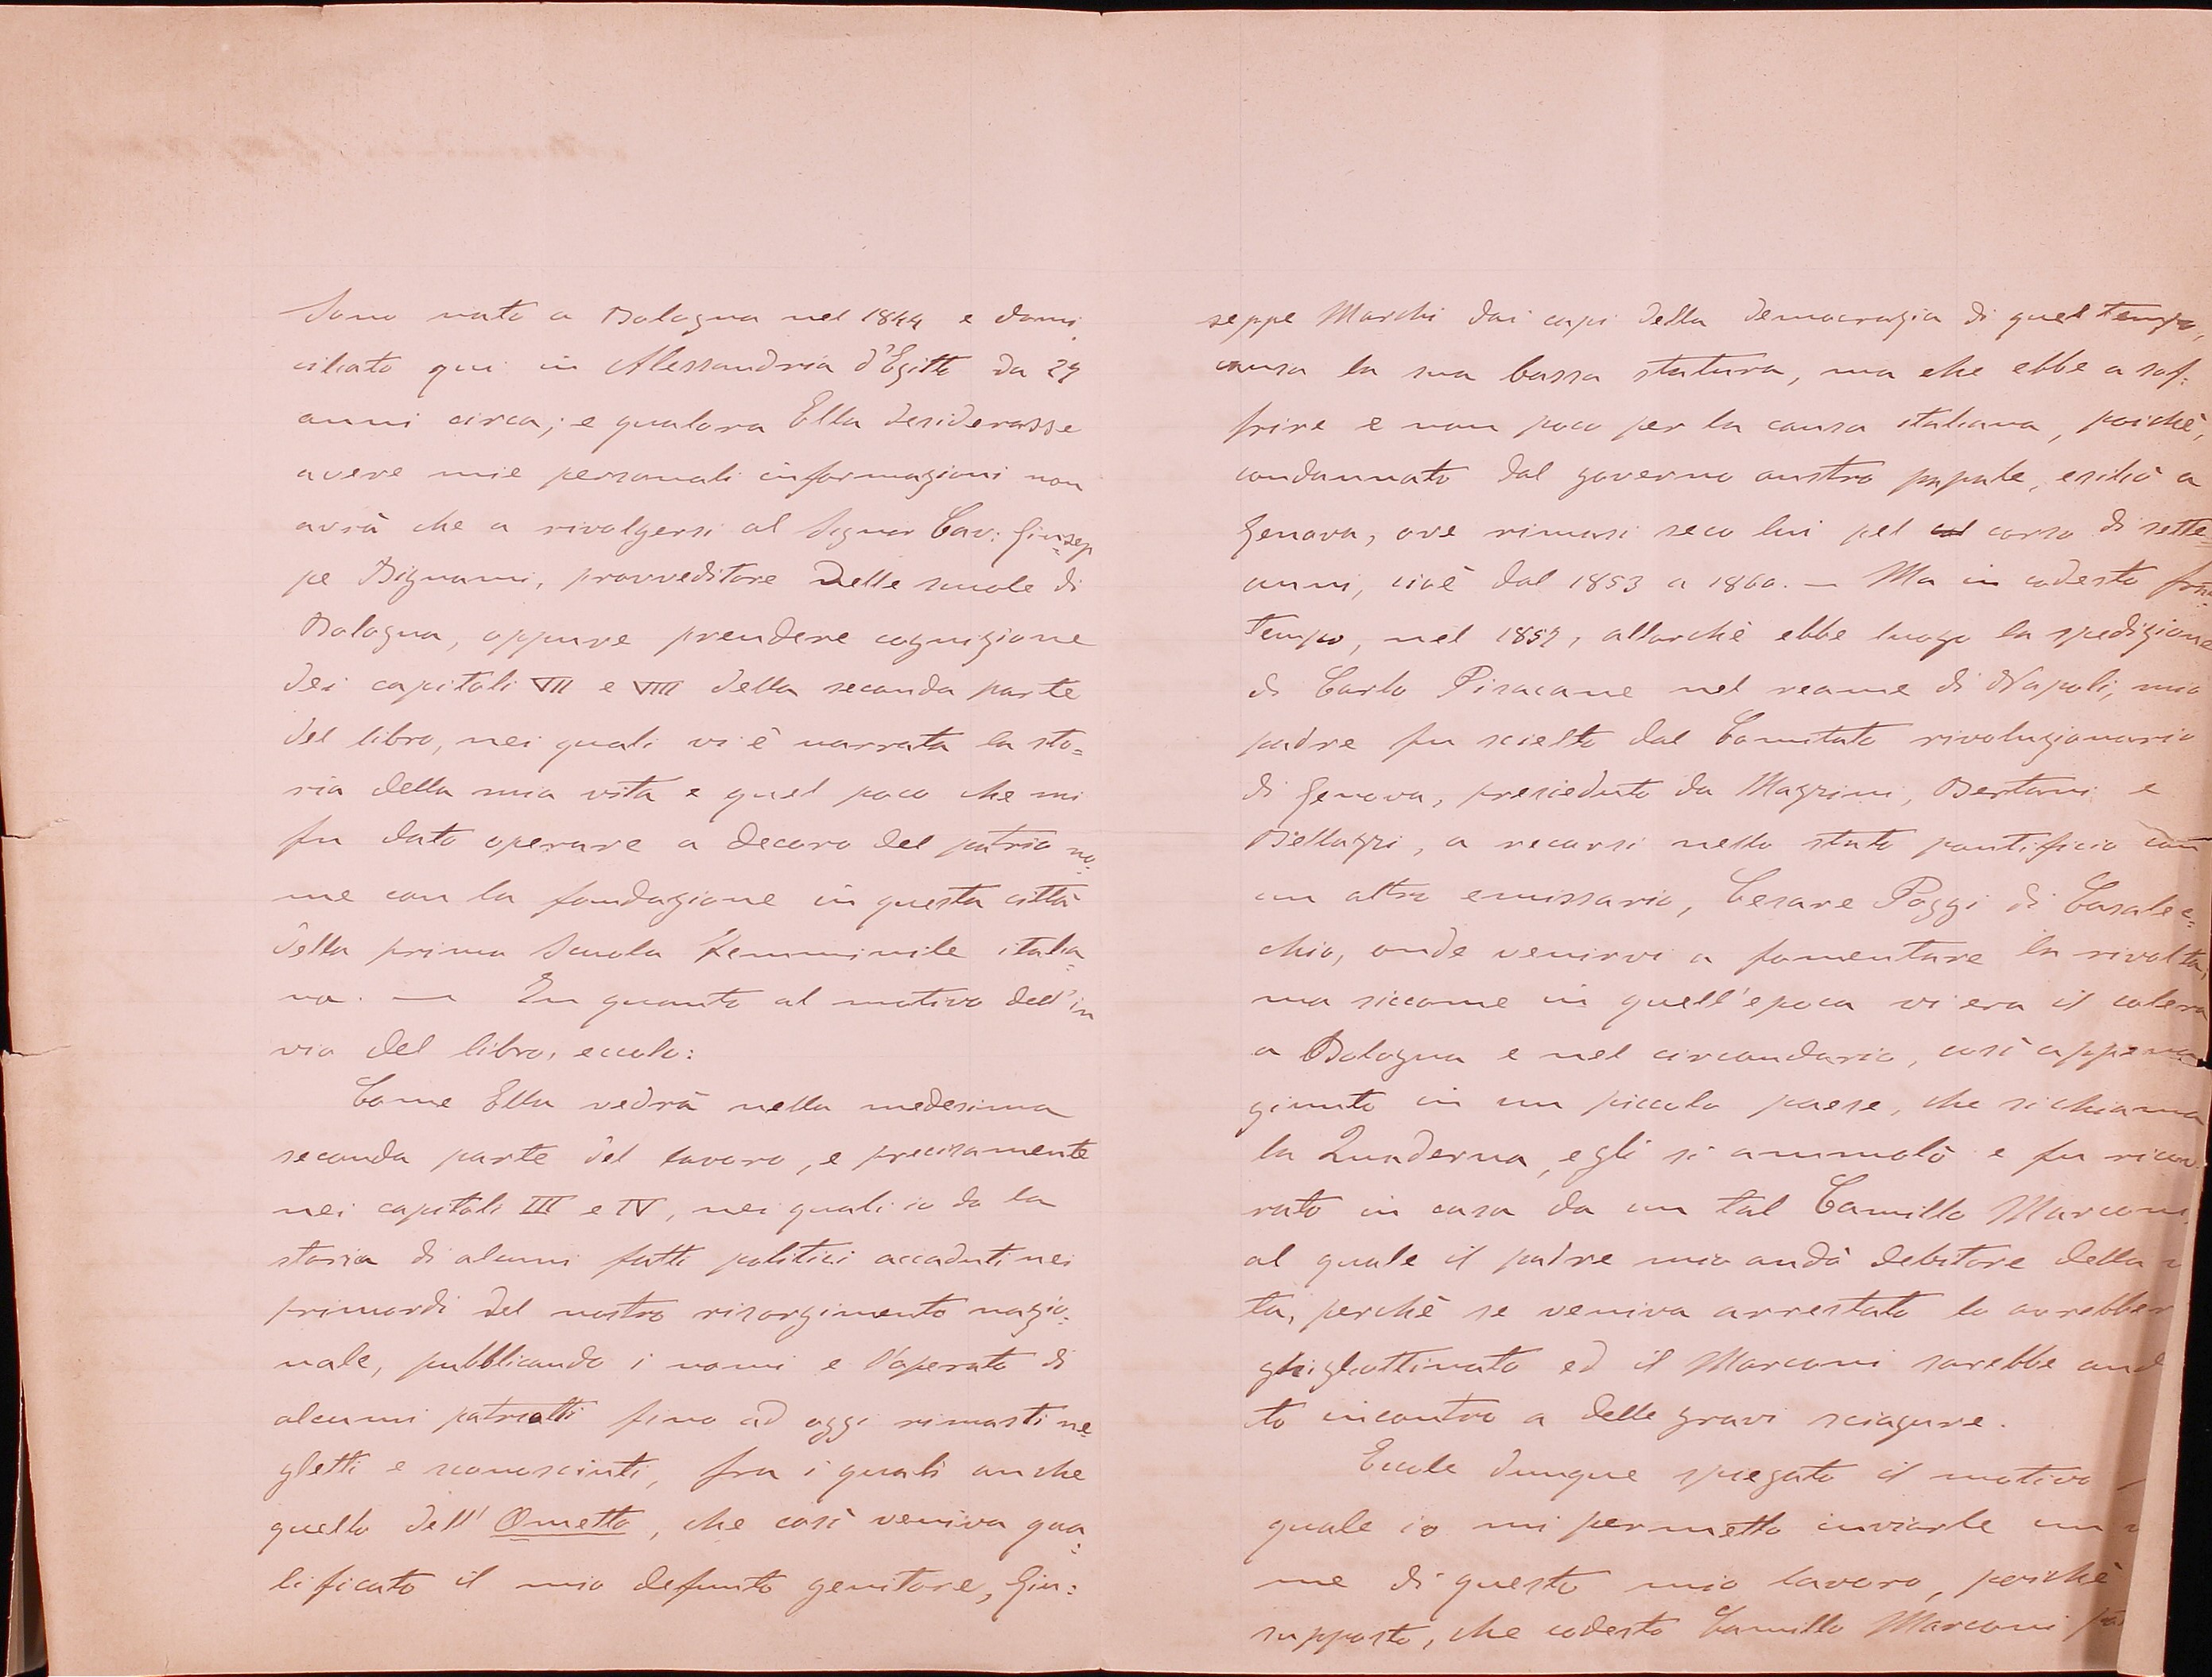 Sono nato a Bologna nel 1844 e domi
ciliato qui in Alessandria d'Egitto da 29
anni circa; e qualora Ella desiderasse
avere mie personali informazioni non
avrà che a rivolgersi al Signor Cav: Giusep
pe Bignami, provveditore delle scuole di
Bologna, oppure prendere cognizione
dei capitoli VII e VIII della seconda parte
del libro, nei quali vi è narrata la sto=
ria della mia vita e quel poco che mi
fu dato operare a decoro del patrio no=
me con la fondazione in questa città
della prima Scuola femminile italia=
na. — In quanto al motivo dell'in
vio del libro, eccolo:
Come Ella vedrà nella medesima
seconda parte del lavoro, e precisamente
nei capitoli III e IV, nei quali io do la
storia di alcuni fatti politici accaduti nei
primordi del nostro risorgimento nazio=
nale, pubblicando i nomi e l'operato di
alcuni patriotti fino ad oggi rimasti ne
gletti e sconosciuti, fra i quali anche
quello dell' Ometto, che così veniva qua=
lificato il mio defunto genitore, Giu=
seppe Marchi dai capi della democrazia di quel tempo,
causa la sua bassa statura, ma che ebbe a sof=
frire e non poco per la causa italiana, poichè,
condannato dal governo austro papale, esiliò a
Genova, ove rimasi seco lui pel corso di sette
anni, cioè dal 1853 a 1860. — Ma in codesto frat
tempo, nel 1857, allorchè ebbe luogo la spedizione
di Carlo Pisacane nel reame di Napoli, mio
padre fu scielto dal Comitato rivoluzionario
di Genova, presieduto da Mazzini, Bertani e
Bellazzi, a recarsi nello stato pontificio con
un altro emissario, Cesare Poggi di Casalec=
chio, onde venirvi a fomentare la rivolta,
ma siccome in quell'epoca vi era il colera
a Bologna e nel circondario, così appena
giunto in un piccolo paese, che si chiama
la Quaderna, egli si ammalò e fu ricov
rato in casa da un tal Camillo Marconi,
al quale il padre mio andò debitore della v
ta, perchè se veniva arrestato lo avrebber
ghigliottinato ed il Marconi sarebbe and
to incontro a delle gravi sciagure.
Eccole dunque spiegato il motivo
quale io mi permetto inviarle un v
me di questo mio lavoro, poichè
supposto, che codesto Camillo Marconi